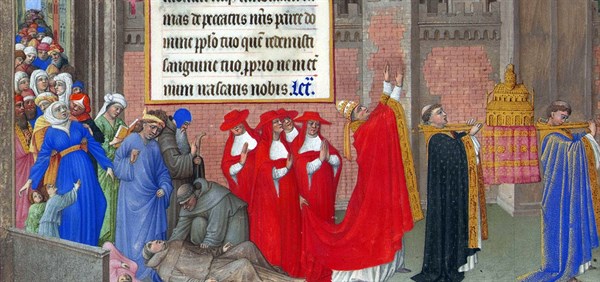 mas de peccatis nr̃is parce do
mine pp̃lo tuo quẽ redemisti
sanguine tuo ꝓprio ne in et̃
num irascaris nobis.